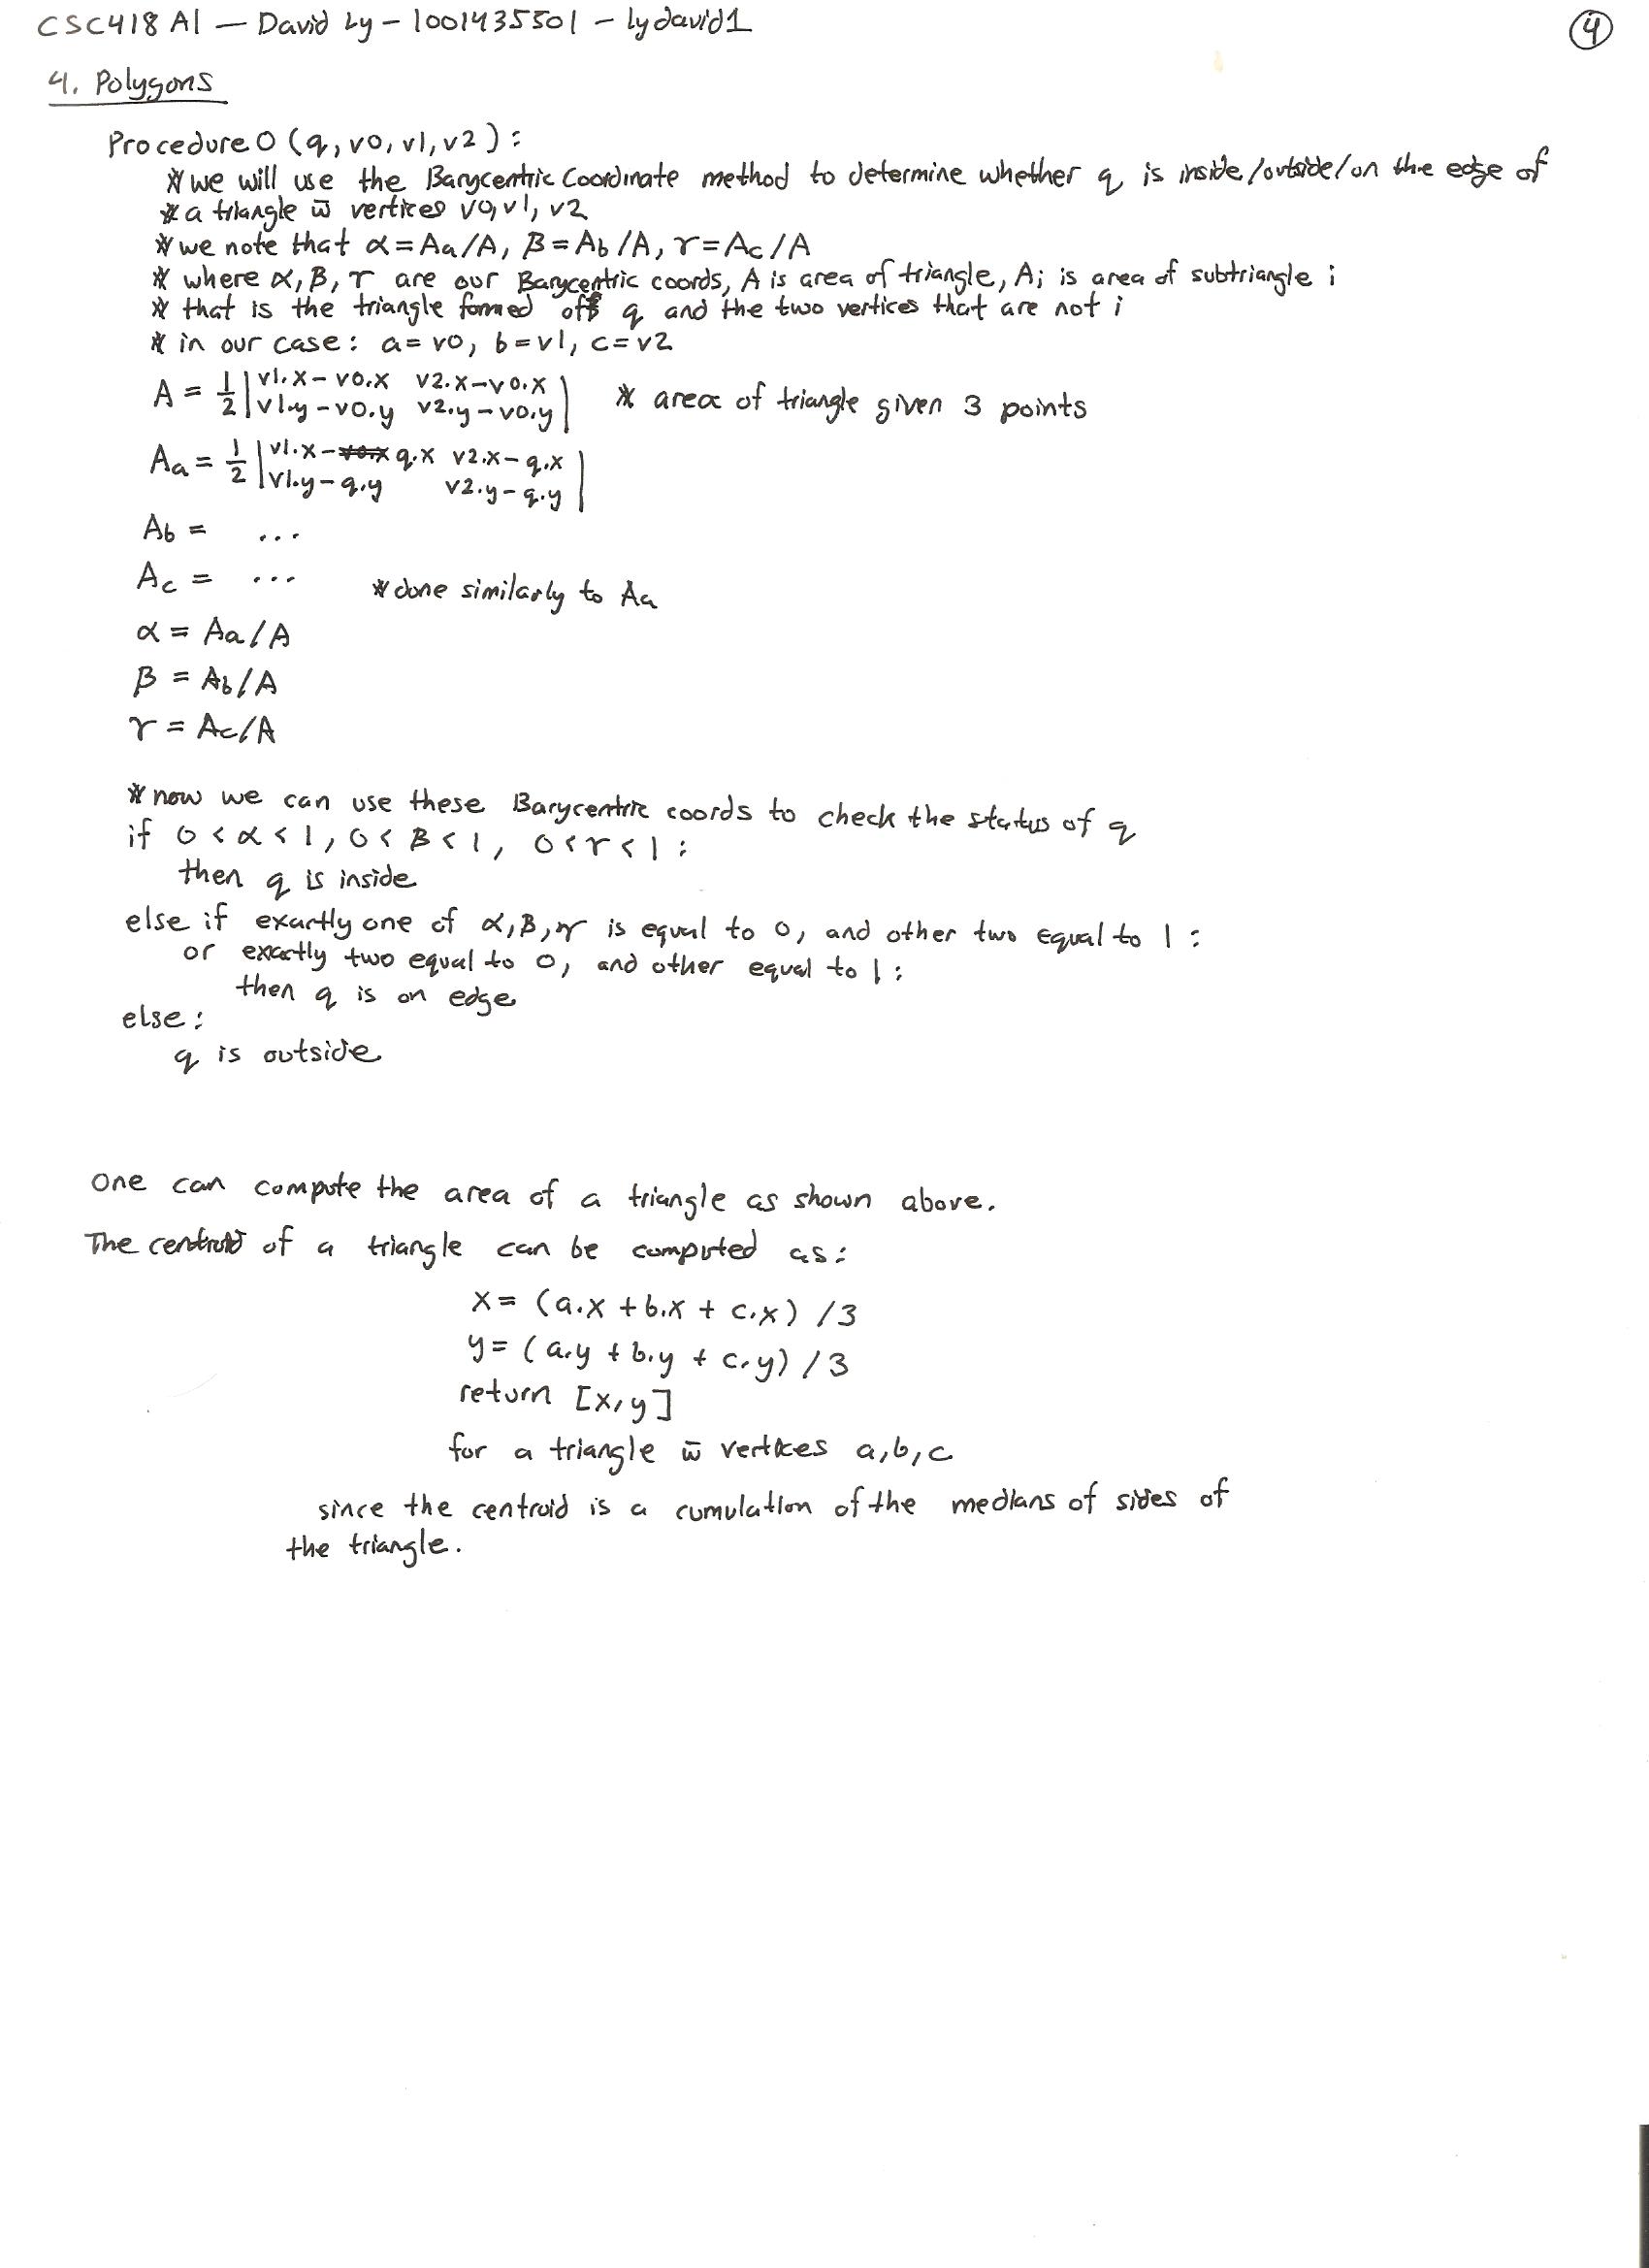 CSC418 A1 — David Ly - 1001435501 - lydavid1
4
4. Polygons
Procedure 0 (q, v0, v1, v2):
* we will use the Barycentric Coordinate method to determine whether q is inside/outside/on the edge of
* a triangle w̄ vertices v0, v1, v2
* we note that α = Aa/A, β = Ab/A, γ = Ac/A
* where α, β, γ are our Barycentric coords, A is area of triangle, Ai is area of subtriangle i
* that is the triangle formed off q and the two vertices that are not i
* in our case: a = v0, b = v1, c = v2
A = 1/2 | v1.x - v0.x v2.x - v0.x |
| v1.y - v0.y v2.y - v0.y | * area of triangle given 3 points
Aa = 1/2 | v1.x - q.x v2.x - q.x |
| v1.y - q.y v2.y - q.y |
Ab = ...
Ac = ... * done similarly to Aa
α = Aa/A
β = Ab/A
γ = Ac/A
* now we can use these Barycentric coords to check the status of q
if 0 < α < 1, 0 < β < 1, 0 < γ < 1 :
then q is inside
else if exactly one of α, β, γ is equal to 0, and other two equal to 1 :
or exactly two equal to 0, and other equal to 1 :
then q is on edge
else :
q is outside
One can compute the area of a triangle as shown above.
The centroid of a triangle can be computed as:
x = (a.x + b.x + c.x) / 3
y = (a.y + b.y + c.y) / 3
return [x, y]
for a triangle w̄ vertices a, b, c
since the centroid is a cumulation of the medians of sides of
the triangle.